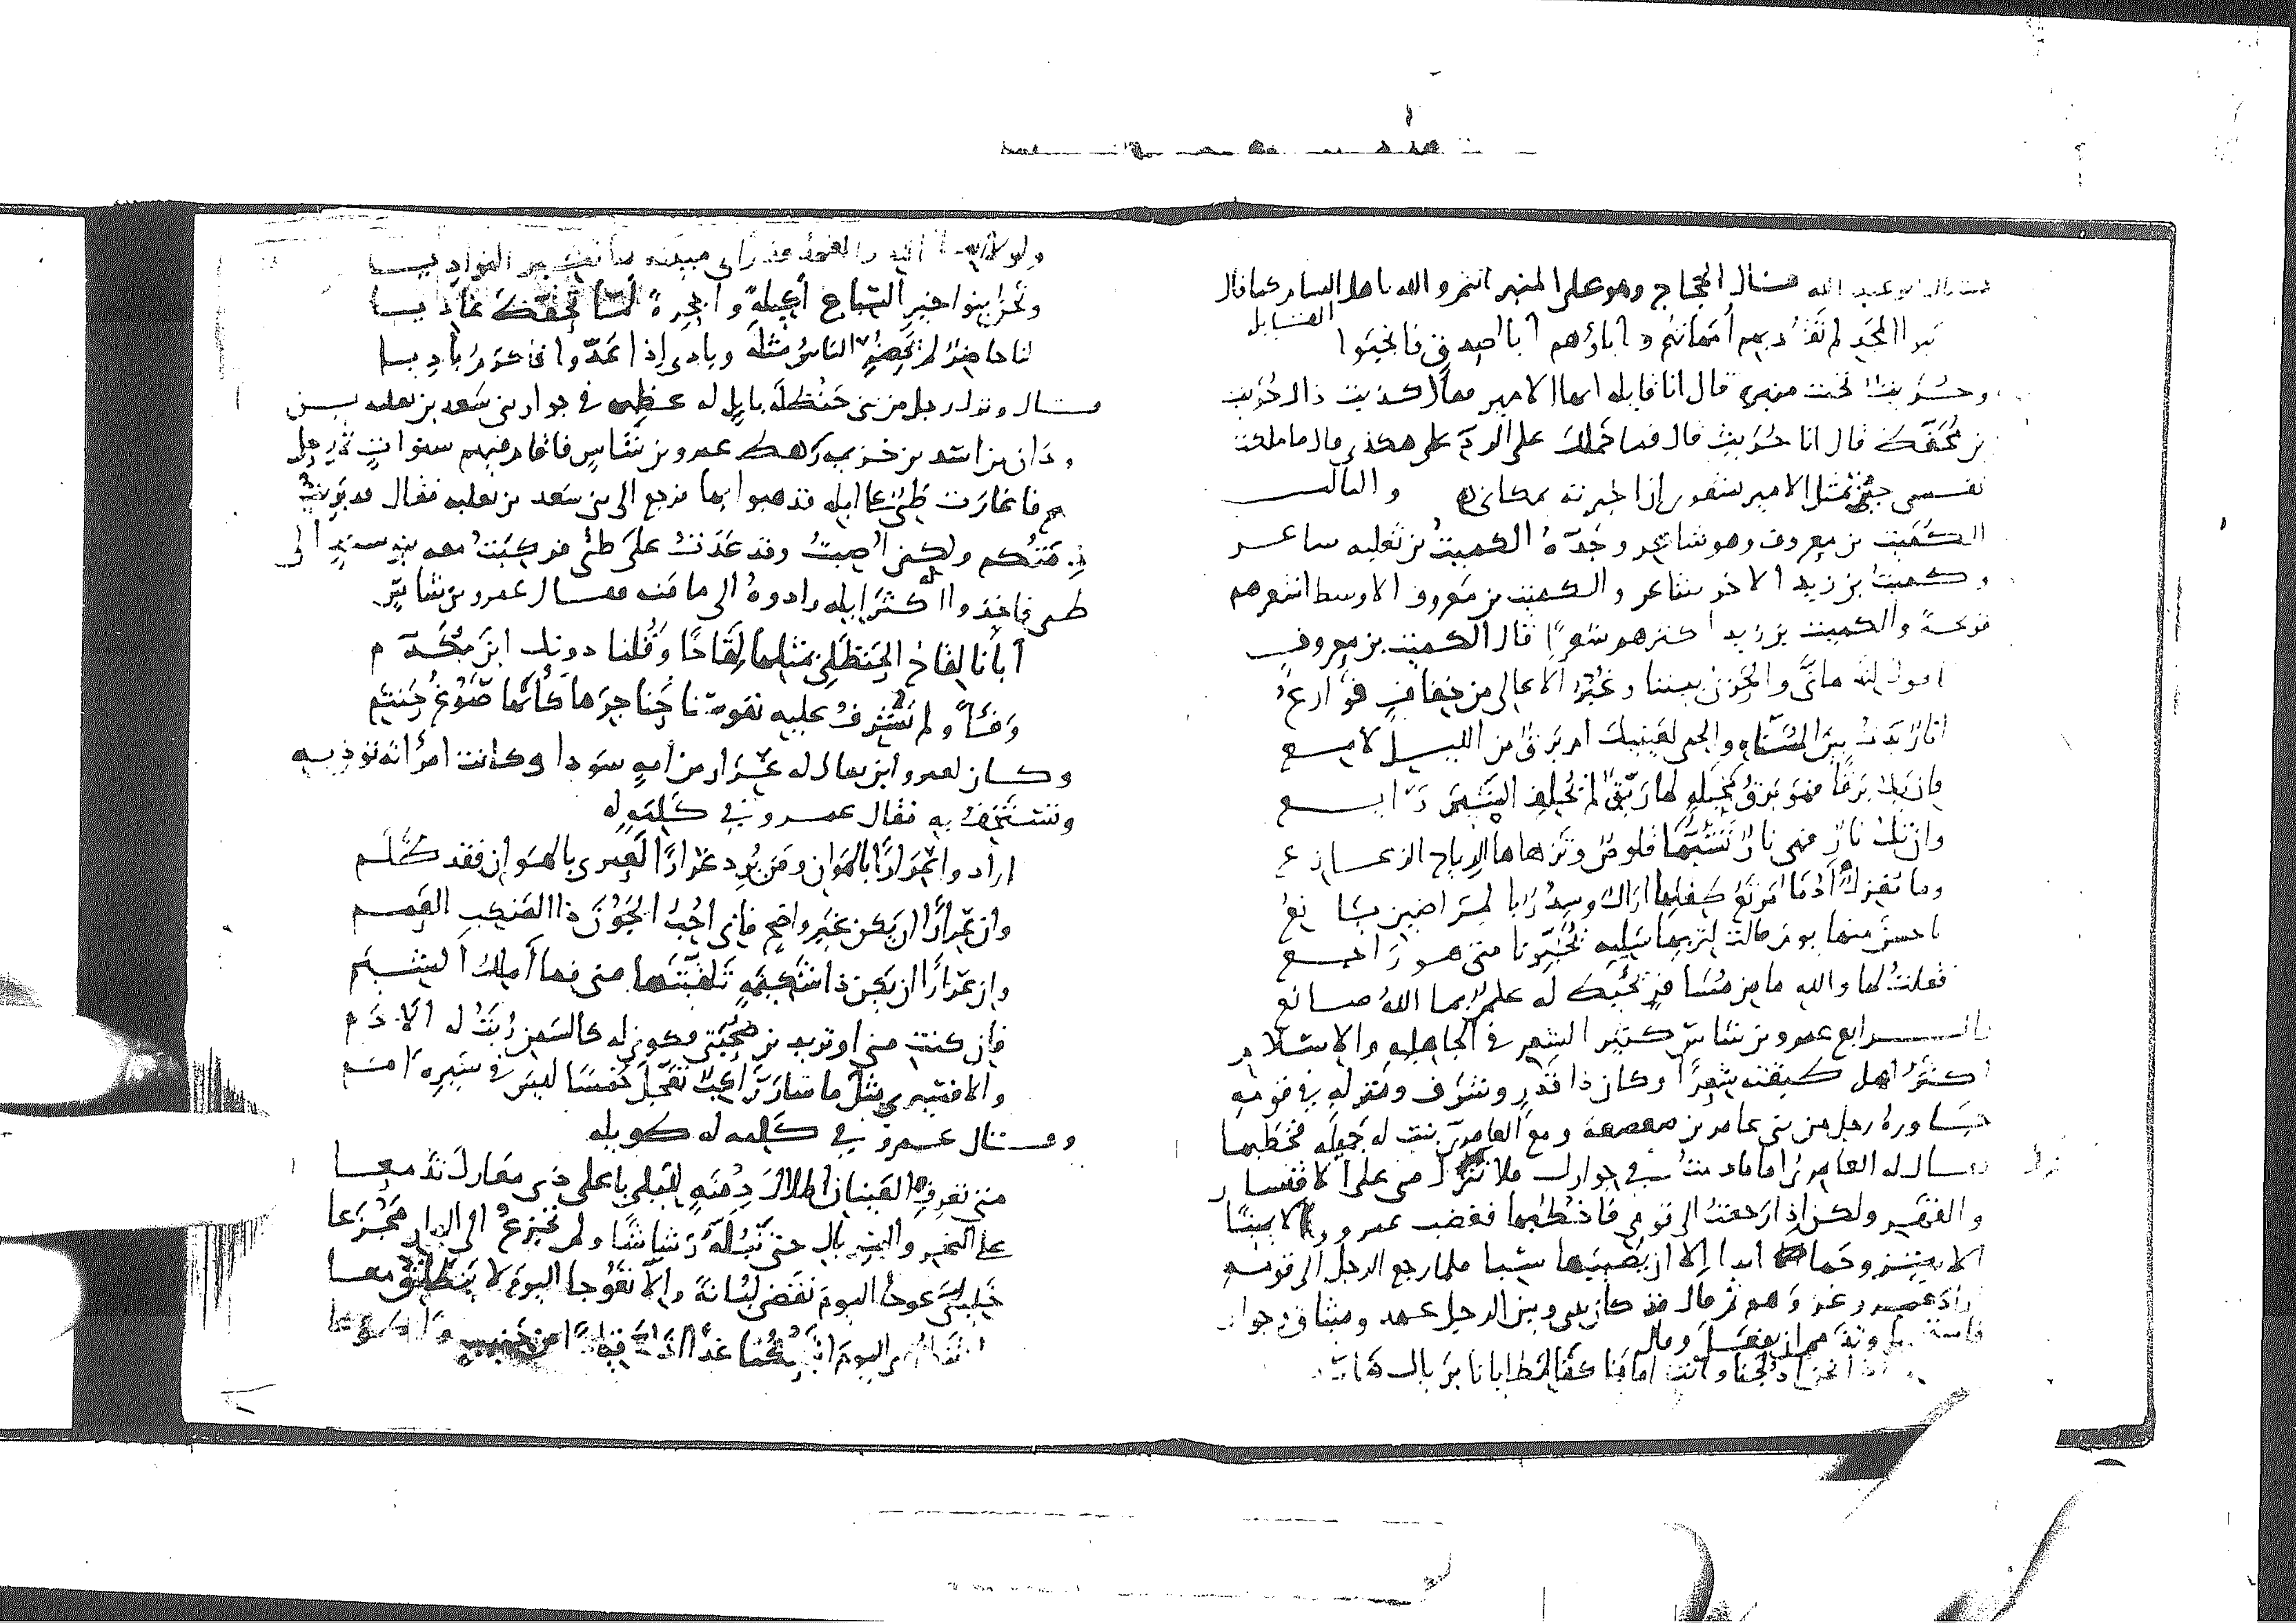 قال ابو عبد الله قال الحجاج وهو على المنبر انتم والله ياهل الشام كما قال القايل
المجد لم تقعد بهم امهاتهم وآباؤهم آبا صدق فانجبوا
وحريث تحت منبره قال انا قايله ايها الامير فقال كذبت ذاك حريث
بن محفض قال انا حريث قال فما حملك على الرد على هكذى قال ما ملكت
نفسى حين تمثل الامير بشعرى اذ اخبرته بمكانى والثالث
الكميت بن معروف وهو شاعر وجده الكميت بن ثعلبه شاعر
وكميت بن زيد الاخر شاعر والكميت بن معروف الاوسط اشعرهم
قريحة والكميت بن زيد اكثرهم شعرا قال الكميت بن معروف
اقول له والحزن بيننا وغبر الاعالى من خفاف فوارع
انار بدت بين المسناه والحمى لعينيك ام برق من الليل لامع
فان يك برقا فهو برق مخيلة لها ريق لم يخلف الشيم رايع
وان تك نار فهى نار تشبها قلوص وتزهاها الرياح الزعازع
وما مغزل ادما مرتع طفلها اراك وسدر بالمراضين يانع
باحسن منها يوم قالت لتربها سليه يخبرنا متى هو راجع
فقلت لها والله ما من مسافر يحيط له علم بما الله صانع
الرابع عمرو بن شاس كثير الشعر فى الجاهليه والاسلام
اكثر اهل طبقته شعرا وكان ذا قدر وشرف ومنزله فى قومه
جاوره رجل من بنى عامر بن صعصعة ومع العامرى بنت له جميله فخطبها
فقال له العامرى اما ما دمت فى جوارك فلا تنزل منى على الاقتسار
والقهر ولكن اذا رجعت الى قومى فاخطبها فغضب عمرو والا يمينا
الا يتزوجها ابدا الا ان يصيبها سبيا فلما رجع الرجل الى قومه
اراد عمرو غزوهم ثم قال قد كان بينى وبين الرجل عهد وميثاق وجوار
وقال
اذا نحن ادلجنا وانت امامنا كفا لمطايانا برياك هاديا
ولولا اتقا الله والعهد قد راى مبيته منا الغواديا
ونحن بنو خير السباع اكيلة واجحره لما تحفظ عاديا
لنا حاضر لم يحضر الناس مثله وباد اذا عدوا فى اكرم باديا
قال ونزل رجل من بنى حنظله بابل له عظيمه فى جوار بنى سعد بن ثعلبه بن
دودان بن اسد بن خزيمه رهط عمرو بن شاس فاقام فيهم سنوات ثم رحل
فاغارت طى على ابله فذهبوا بها فرجع الى بنى سعد بن ثعلبه فقال قد بريت
ذمتكم ولكنى اصبت وقد عدت على طى فركبت معه بنو سعد الى
طى فاخذوا اكثر ابله وادوه الى مامنه فقال عمرو بن شاس
أبانا لقاح الحنظلى بمثلها لقاحا وقلنا دونك ابن مكدم
وفاً ولم نشرف عليه نفوسنا حناجرها كانما صوغ حنتم
وكان لعمرو ابن يقال له عرار من امه سودا وكانت امرأته توذيه
وتستخف به فقال عمرو فى كلمه له
ارادوا عرارا بالهوان ومن يرد عرارا لعمرى بالهوان فقد ظلم
وان عرارا ان يكن غير واضح فانى احب الجون ذا المنكب العمم
وان عرارا ان يكن ذا شكيمه تلقينها منى فما املك الشيم
فان كنت منى او تريدين صحبتى فكونى له كالسمن ربت له الادم
والا فسيرى مثل ما سار راكب تعجل خمسا ليس فى سيره امم
وقال عمرو فى كلمه له طويله
متى تعرف العينان اطلال دمنه لليلى باعلى ذى معارك تدمعا
على النحر والسربال حتى تبله رشاشا ولم تجزع الى الدار مجزعا
خليلى عوجا اليوم نقضى لبانة والا تعوجا اليوم لا ننطلق معا